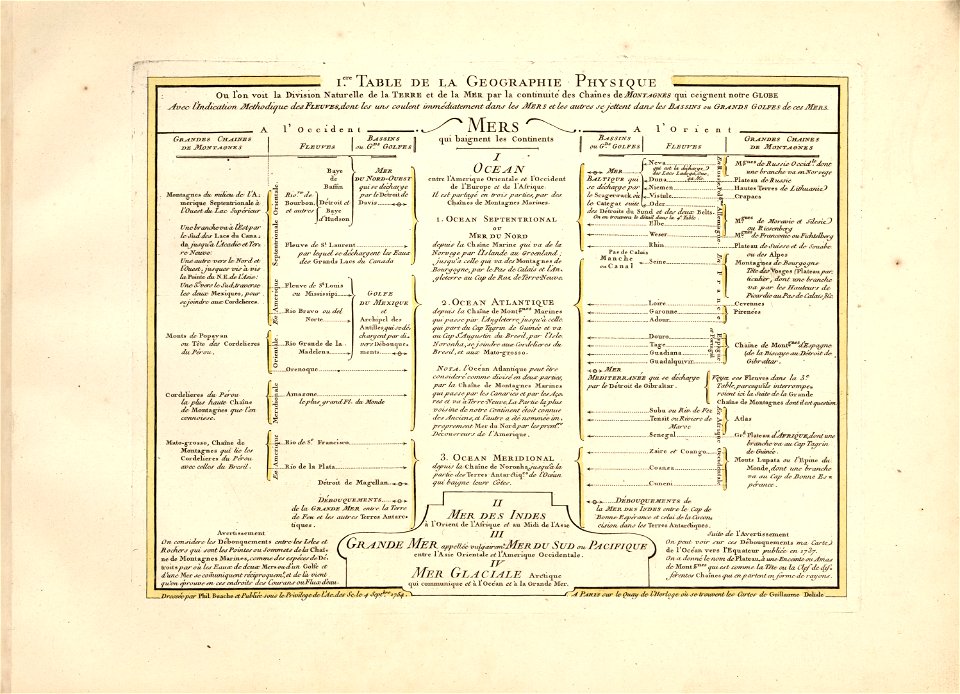 1.ere TABLE DE LA GEOGRAPHIE PHYSIQUE
Ou l'on voit la Division Naturelle de la TERRE et de la MER par la continuité des Chaînes de MONTAGNES qui ceignent notre GLOBE
Avec l'Indication Methodique des FLEUVES, dont les uns coulent immédiatement dans les MERS et les autres se jettent dans les BASSINS ou GRANDS GOLFES de ces MERS.
A l'Occident
GRANDES CHAINES DE MONTAGNES
FLEUVES
BASSINS ou G.ds GOLFES
Montagnes du milieu de l'A=
mérique Septentrionale à
l'Ouest du Lac Supérieur
Une branche va à l'Est par
le Sud des Lacs du Cana=
da, jusqu'à l'Acadie et Ter=
re Neuve.
Une autre vers le Nord et
l'Ouest, jusques vis à vis
la Pointe du N.E. de l'Asie:
Une 3.e vers le Sud, traverse
les deux Mexiques, pour
se joindre aux Cordelieres.
Monts de Popayan
ou Tête des Cordelieres
du Pérou.
Cordelieres du Pérou
la plus haute Chaîne
de Montagnes que l'on
connoisse.
Mato-grosso, Chaîne de
Montagnes qui lie les
Cordelieres du Pérou
avec celles du Bresil.
En Amérique Septentrionale Orientale
Baye
de
Baffin
Riv.res de
Bourbon
et autres
Détroit et
Baye
d'Hudson
MER
DU NORD-OUEST
qui se décharge
par le Détroit de
Davis
Fleuve de S.t Laurent
par lequel se déchargent les Eaux
des Grands Lacs du Canada
Fleuve de S.t Louis
ou Mississipi
Rio Bravo ou del
Norte
Rio Grande de la
Madelena
GOLFE
DU MEXIQUE
et
Archipel des
Antilles, qui se dé=
chargent par di=
vers Débouque=
ments
En Amérique Méridionale Orientale
Orenoque
Amazone
le plus grand Fl. du Monde
Rio de S.t Francisco
Rio de la Plata
Détroit de Magellan
DÉBOUQUEMENTS
de la GRANDE MER entre la Terre
de Feu et les autres Terres Antarc=
tiques.
MERS
qui baignent les Continents
I
OCEAN
entre l'Amerique Orientale et l'Occident
de l'Europe et de l'Afrique
Il est partagé en trois parties, par des
Chaînes de Montagnes Marines.
1. OCEAN SEPTENTRIONAL
ou
MER DU NORD
depuis la Chaîne Marine qui va de la
Norvege par l'Islande au Groenland;
jusqu'à celle qui va des Montagnes de
Bourgogne, par le Pas de Calais et l'An=
gleterre au Cap de Raz, de Terre-Neuve.
2. OCEAN ATLANTIQUE
depuis la Chaîne de Mont.gnes Marines
qui passe par l'Angleterre jusqu'à celle
qui part du Cap Tagrin de Guinée et va
au Cap S.t Augustin du Bresil, par l'Isle
Noronha, se joindre aux Cordelieres du
Bresil, et aux Mato-grosso.
NOTA. l'Océan Atlantique peut être
consideré comme divisé en deux parties,
par la Chaîne de Montagnes Marines
qui passe par les Canaries et par les Aço=
res et va à Terre Neuve. La Partie la plus
voisine de notre Continent étoit connue
des Anciens, et l'autre a été nommée im=
proprement Mer du Nord par les prem.ers
Découvreurs de l'Amerique.
3. OCEAN MERIDIONAL
depuis la Chaîne de Noronha, jusqu'à la
partie des Terres Antarctiq.es de l'Océan
qui baigne leur Côtes.
II
MER DES INDES
à l'Orient de l'Afrique et au Midi de l'Asie
III
GRANDE MER appellée vulgairem.t MER DU SUD ou PACIFIQUE
entre l'Asie Orientale et l'Amerique Occidentale.
IV
MER GLACIALE Arctique
qui communique et à l'Océan et à la Grande Mer.
A l'Orient
BASSINS ou G.ds GOLFES
FLEUVES
GRANDES CHAINES DE MONTAGNES
MER
BALTIQUE qui
se décharge par
le Scagerrack et
le Categat suite
des Détroits du Sund et des deux Belts.
On en trouvera le détail dans la 2.e Table
Neva
qui est la décharge
des Lacs Ladoga, Onega, &c.
Duna
Niemen
Vistule
Oder
Elbe
Weser
Rhin
Pas de Calais
Manche
ou Canal
Seine
Loire
Garonne
Adour
Douro
Tage
Guadiana
Guadalquivir
MER
MEDITERRANÉE qui se décharge
par le Détroit de Gibraltar.
Subu ou Rio de Fez
Tensit ou Riviere de
Maroc
Senegal
Zaire et Coango
Coanza
Cuneni
En Allemagne
En France
Espagne et Portugal
En Afrique Occidentale
M.gnes de Russie Occid.le dont
une branche va en Norvege
Plateau de Russie
Hautes Terres de Lithuanie
Crapacs
M.gnes de Moravie et Silesie
ou Riesenberg
M.gnes de Franconie ou Fichtelberg
Plateau de Suisse et de Souabe
ou des Alpes
Montagnes de Bourgogne
Tête des Vosges (Plateau par=
ticulier, dont une branche
va par les Hauteurs de
Picardie au Pas de Calais, &c.
Cevennes
Pirenées
Chaîne de Mont.gnes d'Espagne
(de la Biscaye au Détroit de
Gibraltar.
Voyez ses Fleuves dans la 3.e
Table, parcequ'ils interrompe=
roient ici la suite de la Grande
Chaîne de Montagnes dont il est question
Atlas
Gr.d Plateau d'AFRIQUE, dont une
branche va au Cap Tagrin
de Guinée.
Monts Lupata ou l'Epine du
Monde, dont une branche
va au Cap de Bonne Es=
pérance.
DÉBOUQUEMENS de
la MER DES INDES entre le Cap de
Bonne Espérance et celui de la Circon=
cision dans les Terres Antarctiques.
Avertissement
On considere les Débouquemens entre les Isles et
Rochers qui sont les Pointes ou Sommets de la Chaî=
ne de Montagnes Marines, comme des espéces de Dé=
troits par où les Eaux de deux Mers ou d'un Golfe et
d'une Mer se comuniquent réciproquem.t, et de là vient
qu'on éprouve en ces endroits des Courans ou Flux d'eau.
Suite de l'Avertissement
On peut voir sur ces Débouquemens ma Carte
de l'Océan vers l'Equateur publiée en 1737.
On a donné le nom de Plateau, à une Enceinte ou Amas
de Mont.gnes qui est comme la Tête ou la Clef de dif=
férentes Chaînes qui en partent en forme de rayons.
Dressée par Phil. Buache et Publiée sous le Privilege de l'Ac. des Sc. le 4 Sept.bre 1754.
A PARIS sur le Quay de l'Horloge où se trouvent les Cartes de Guillaume Delisle